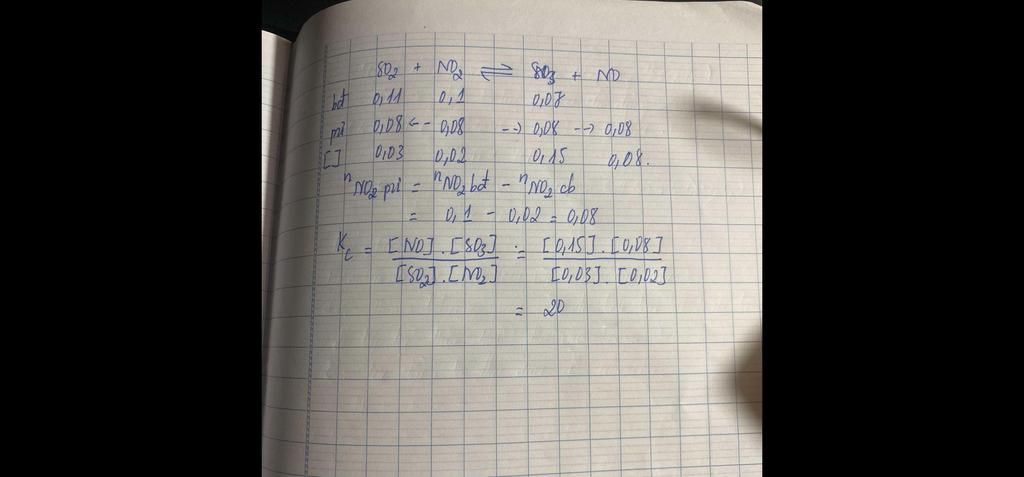 SO2 + NO2 ⇌ SO3 + NO
bđ 0,11 0,1 0,07
pứ 0,08 <-- 0,08 --> 0,08 --> 0,08
[ ] 0,03 0,02 0,15 0,08.
nNO2 pứ = nNO2 bđ - nNO2 cb
= 0,1 - 0,02 = 0,08
Kc = [NO].[SO3] / [SO2].[NO2] = [0,15].[0,08] / [0,03].[0,02]
= 20